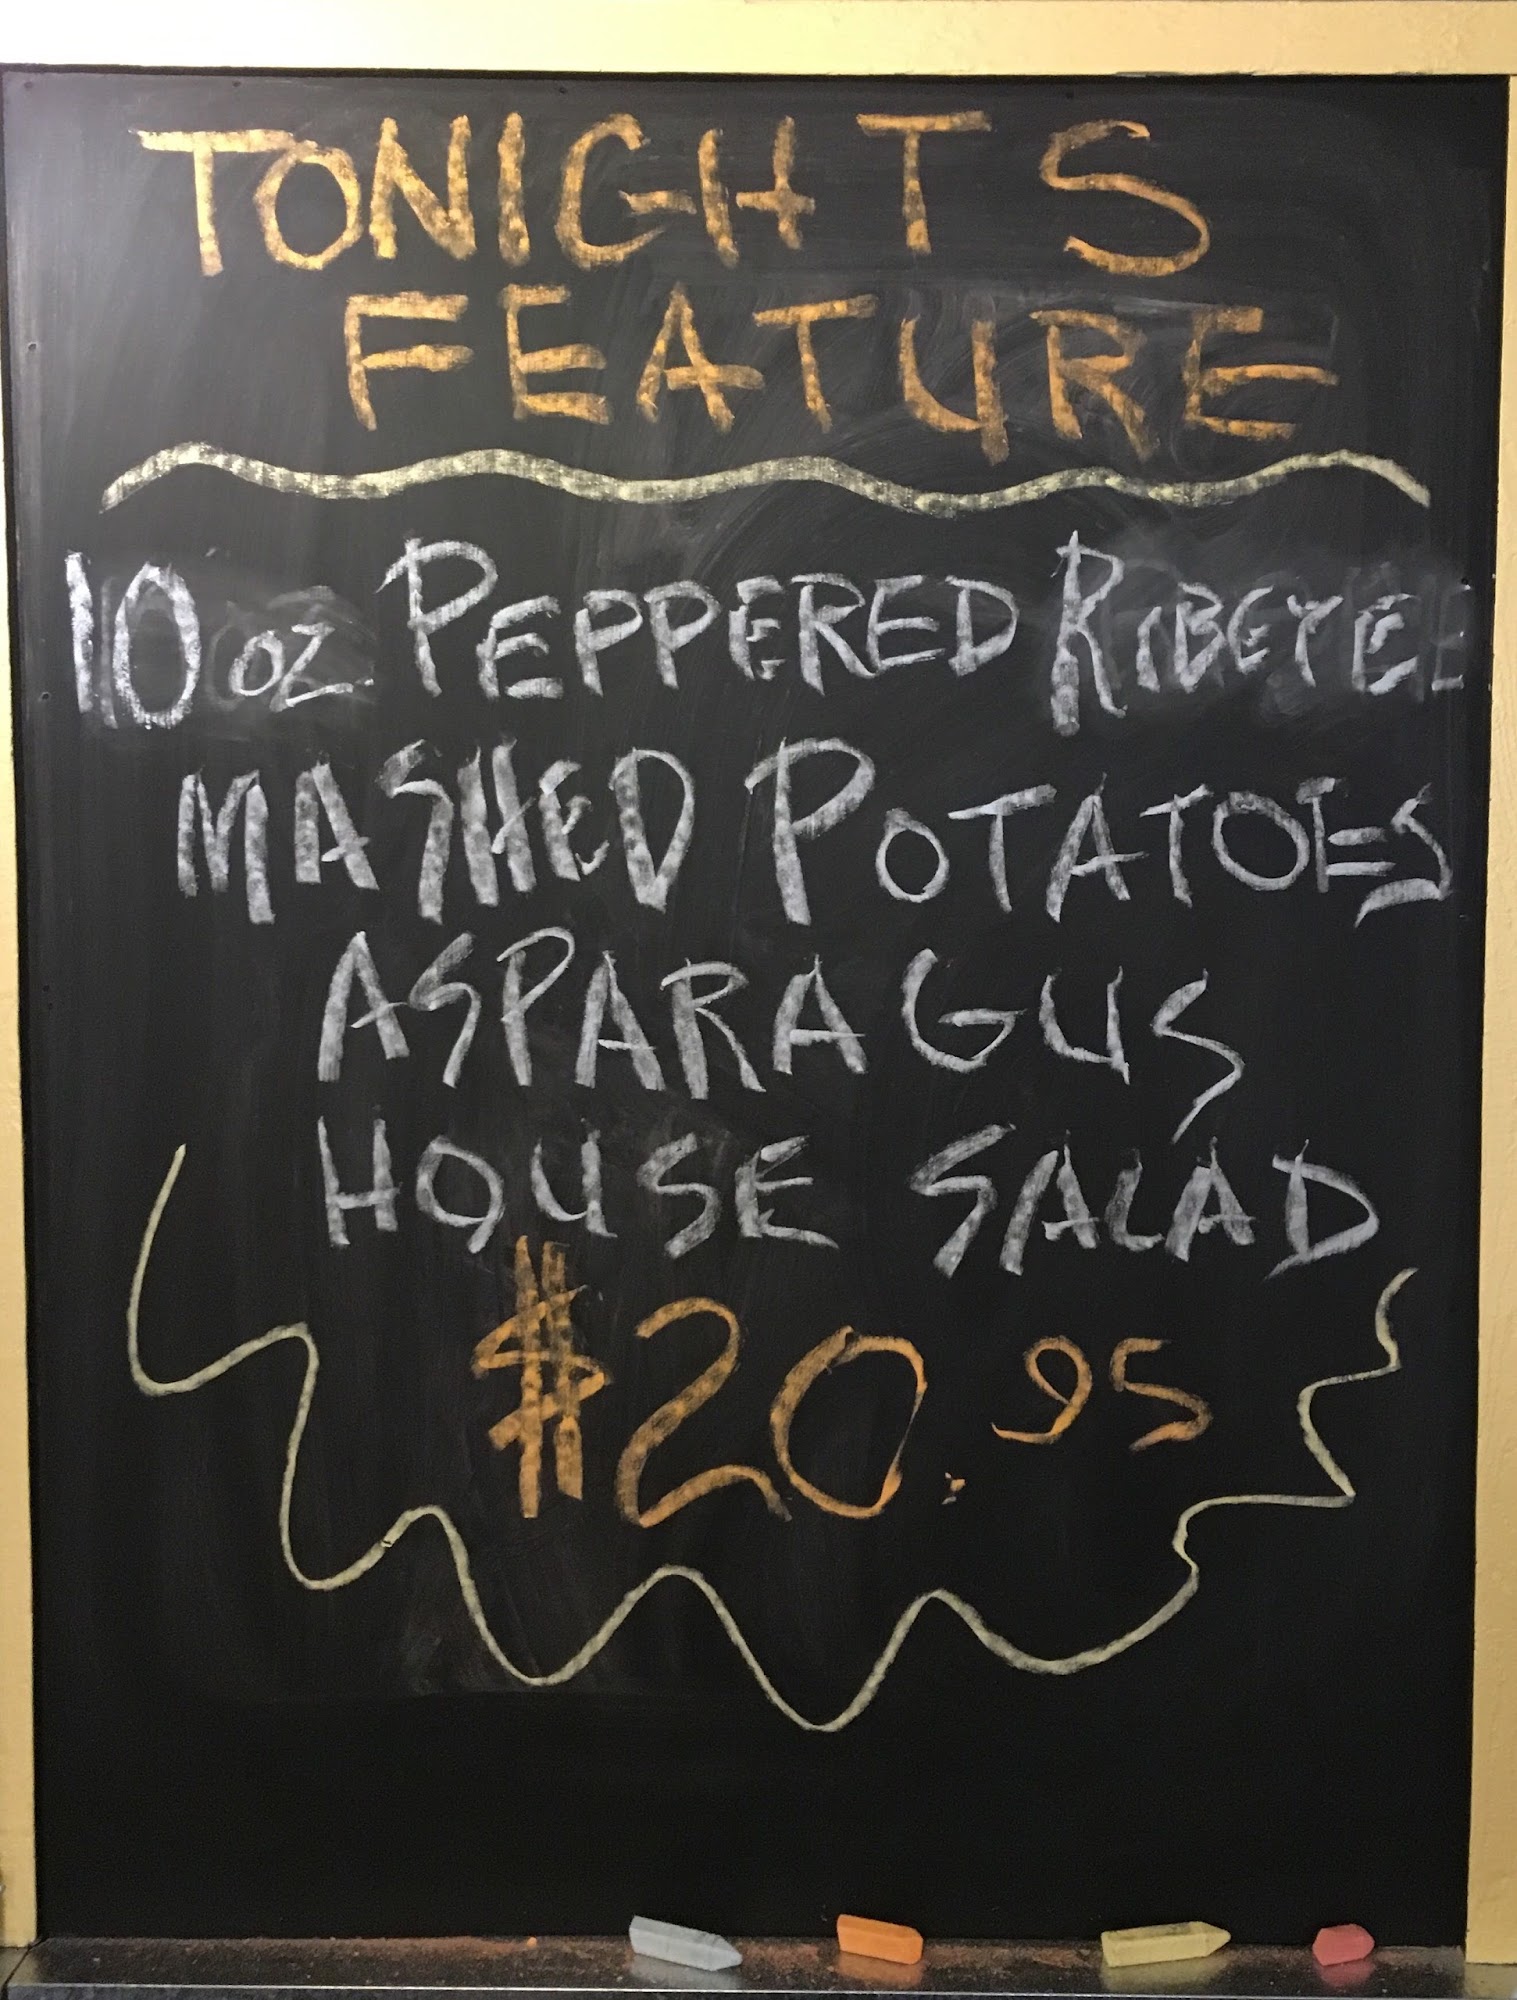 TONIGHTS
FEATURE
10 oz PEPPERED RIBEYE
MASHED POTATOES
ASPARAGUS
HOUSE SALAD
$20.95